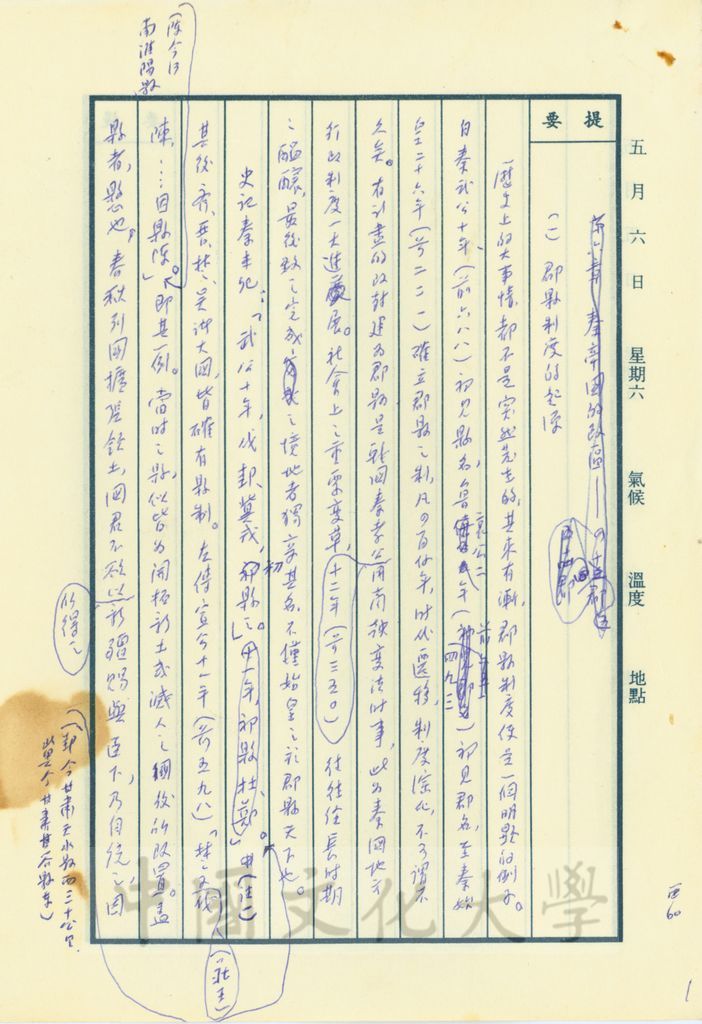 五月六日 星期六 氣候 溫度 地點
提要
第六章 秦帝國的政區——四十五郡
(一) 郡縣制度的起源
歷史上的大事情，都不是突然發生的，其來有漸，郡縣制度便是一個明顯的例子。
自秦武公十年，(前六八八) 初見縣名，魯哀公二年 (前四九三) 初見郡名，至秦始
皇二十六年 (前二二一) 確立郡縣之制，凡四百餘年，時代遷移，制度深化，不可謂不
久矣。有計畫的改封建為郡縣是戰國秦孝公用商鞅變法時事，此為秦國地方
行政制度一大進展。社會上之重要變革，十二年 (前三五〇) 往往經長時期
之醞釀，最後致之完成之境地者獨享其名，不僅始皇之於郡縣天下也。
史記秦本紀：「武公十年，伐邽冀戎，初縣之。十一年，初縣杜鄭」。(註一)
其後齊、晉、楚、吳諸大國，皆確有縣制。左傳宣公十一年 (前五九八)「楚莊王伐
陳，…因縣陳」。即其一例。當時之縣，似皆為開拓新土或滅人之國後所改置。蓋
縣者，懸也，春秋列國擴張領土，國君不欲以所得之新疆賜與臣下，乃自統之，因
(陳今河南淮陽縣)
(莊王)
(邽今甘肅天水縣西三十公里，
冀今甘肅甘谷縣東)
西60
1
中國文化大學